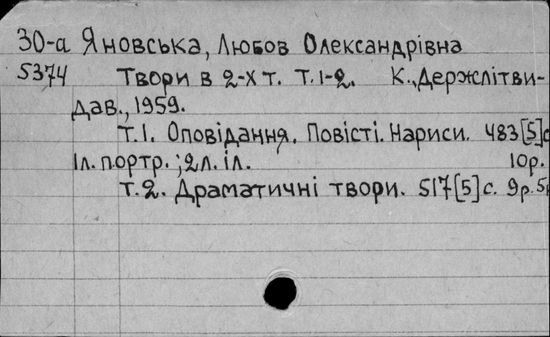 30-а Яновська, Любов Олександрівна
5374 Твори в 2-х т. Т.1-2. К., Держлітви-
дав., 1959.
т.1. Оповідання. Повісті. Нариси. 483[5]с
1л. портр.; 2л. іл. 10р.
т.2. Драматичні твори. 517[5]с. 9р. 5